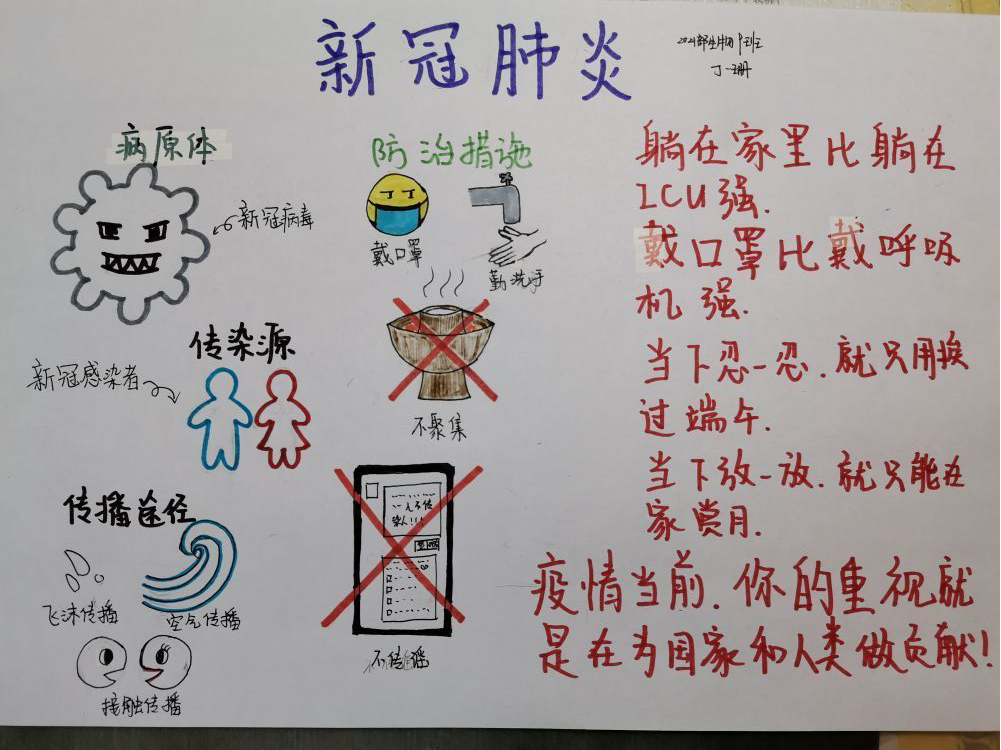 新冠肺炎
丁一珊
病原体
新冠病毒
传染源
新冠感染者
传播途径
飞沫传播
空气传播
接触传播
防治措施
戴口罩
勤洗手
不聚集
染人!!!
不传谣
躺在家里比躺在
ICU强.
戴口罩比戴呼吸
机强.
当下忍一忍.就只用挨
过端午.
当下放一放.就只能在
家赏月.
疫情当前.你的重视就
是在为国家和人类做贡献!